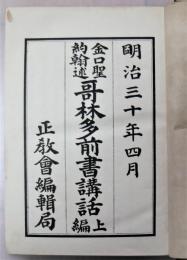 明治三十年四月
金口聖
約翰述
哥林多前書講話
上編
正敎會編輯局